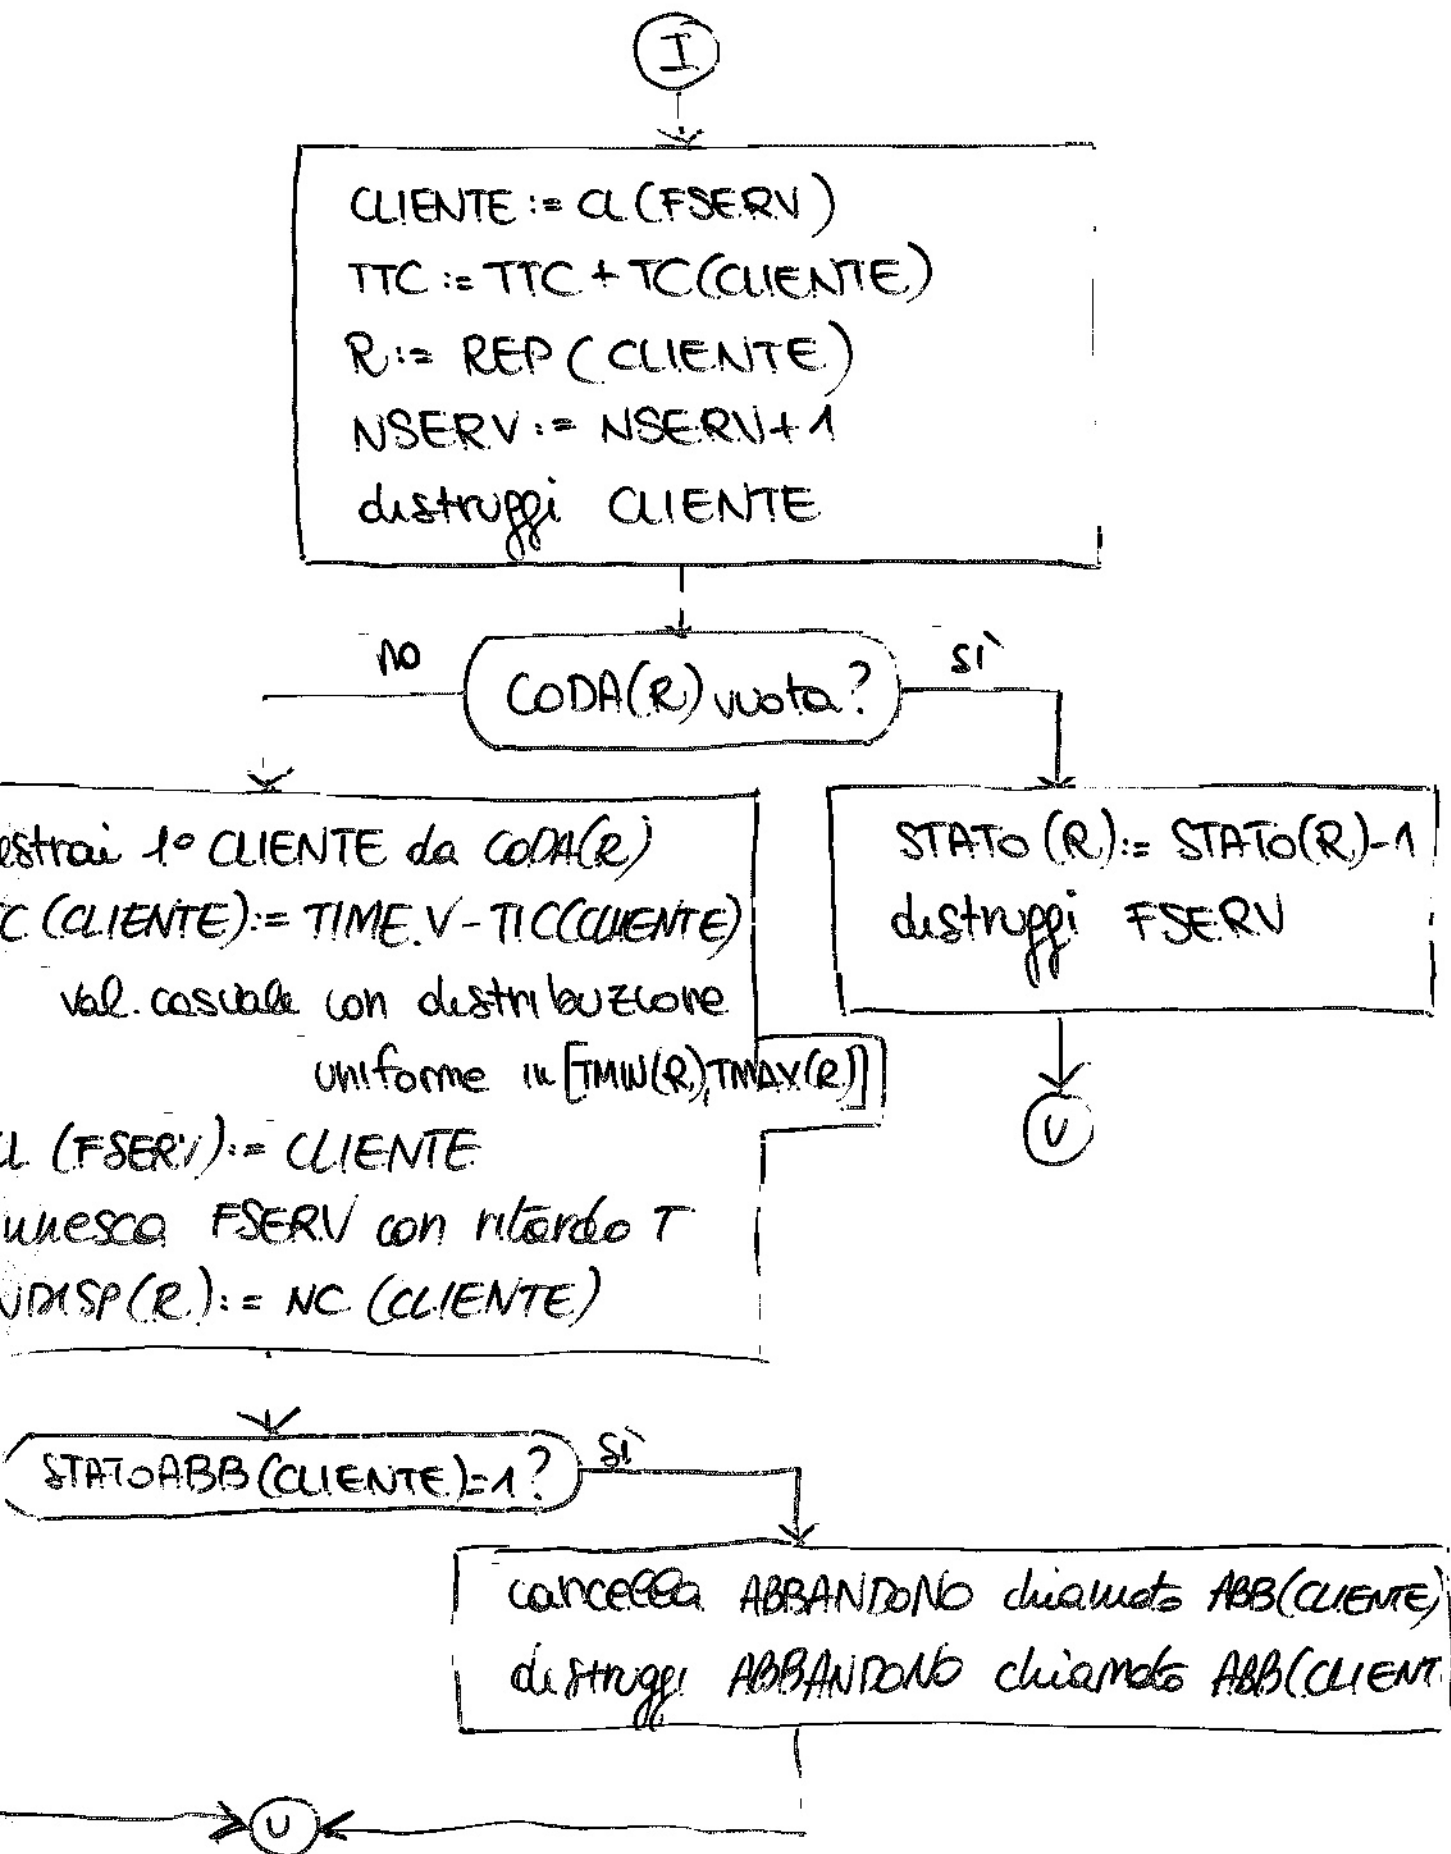 I
CLIENTE := CL (FSERV)
TTC := TTC + TC(CLIENTE)
R := REP (CLIENTE)
NSERV := NSERV + 1
distruggi CLIENTE
no
CODA(R) vuota?
sì
estrai 1º CLIENTE da CODA(R)
C (CLIENTE) := TIME.V - TIC(CLIENTE)
val. casuale con distribuzione
uniforme in [TMIN(R), TMAX(R)]
CL (FSERV) := CLIENTE
innesca FSERV con ritardo T
NDISP(R) := NC (CLIENTE)
STATO (R) := STATO(R) - 1
distruggi FSERV
U
STATOABB (CLIENTE) = 1?
sì
cancella ABBANDONO chiamato ABB(CLIENTE)
distruggi ABBANDONO chiamato ABB(CLIENT
U